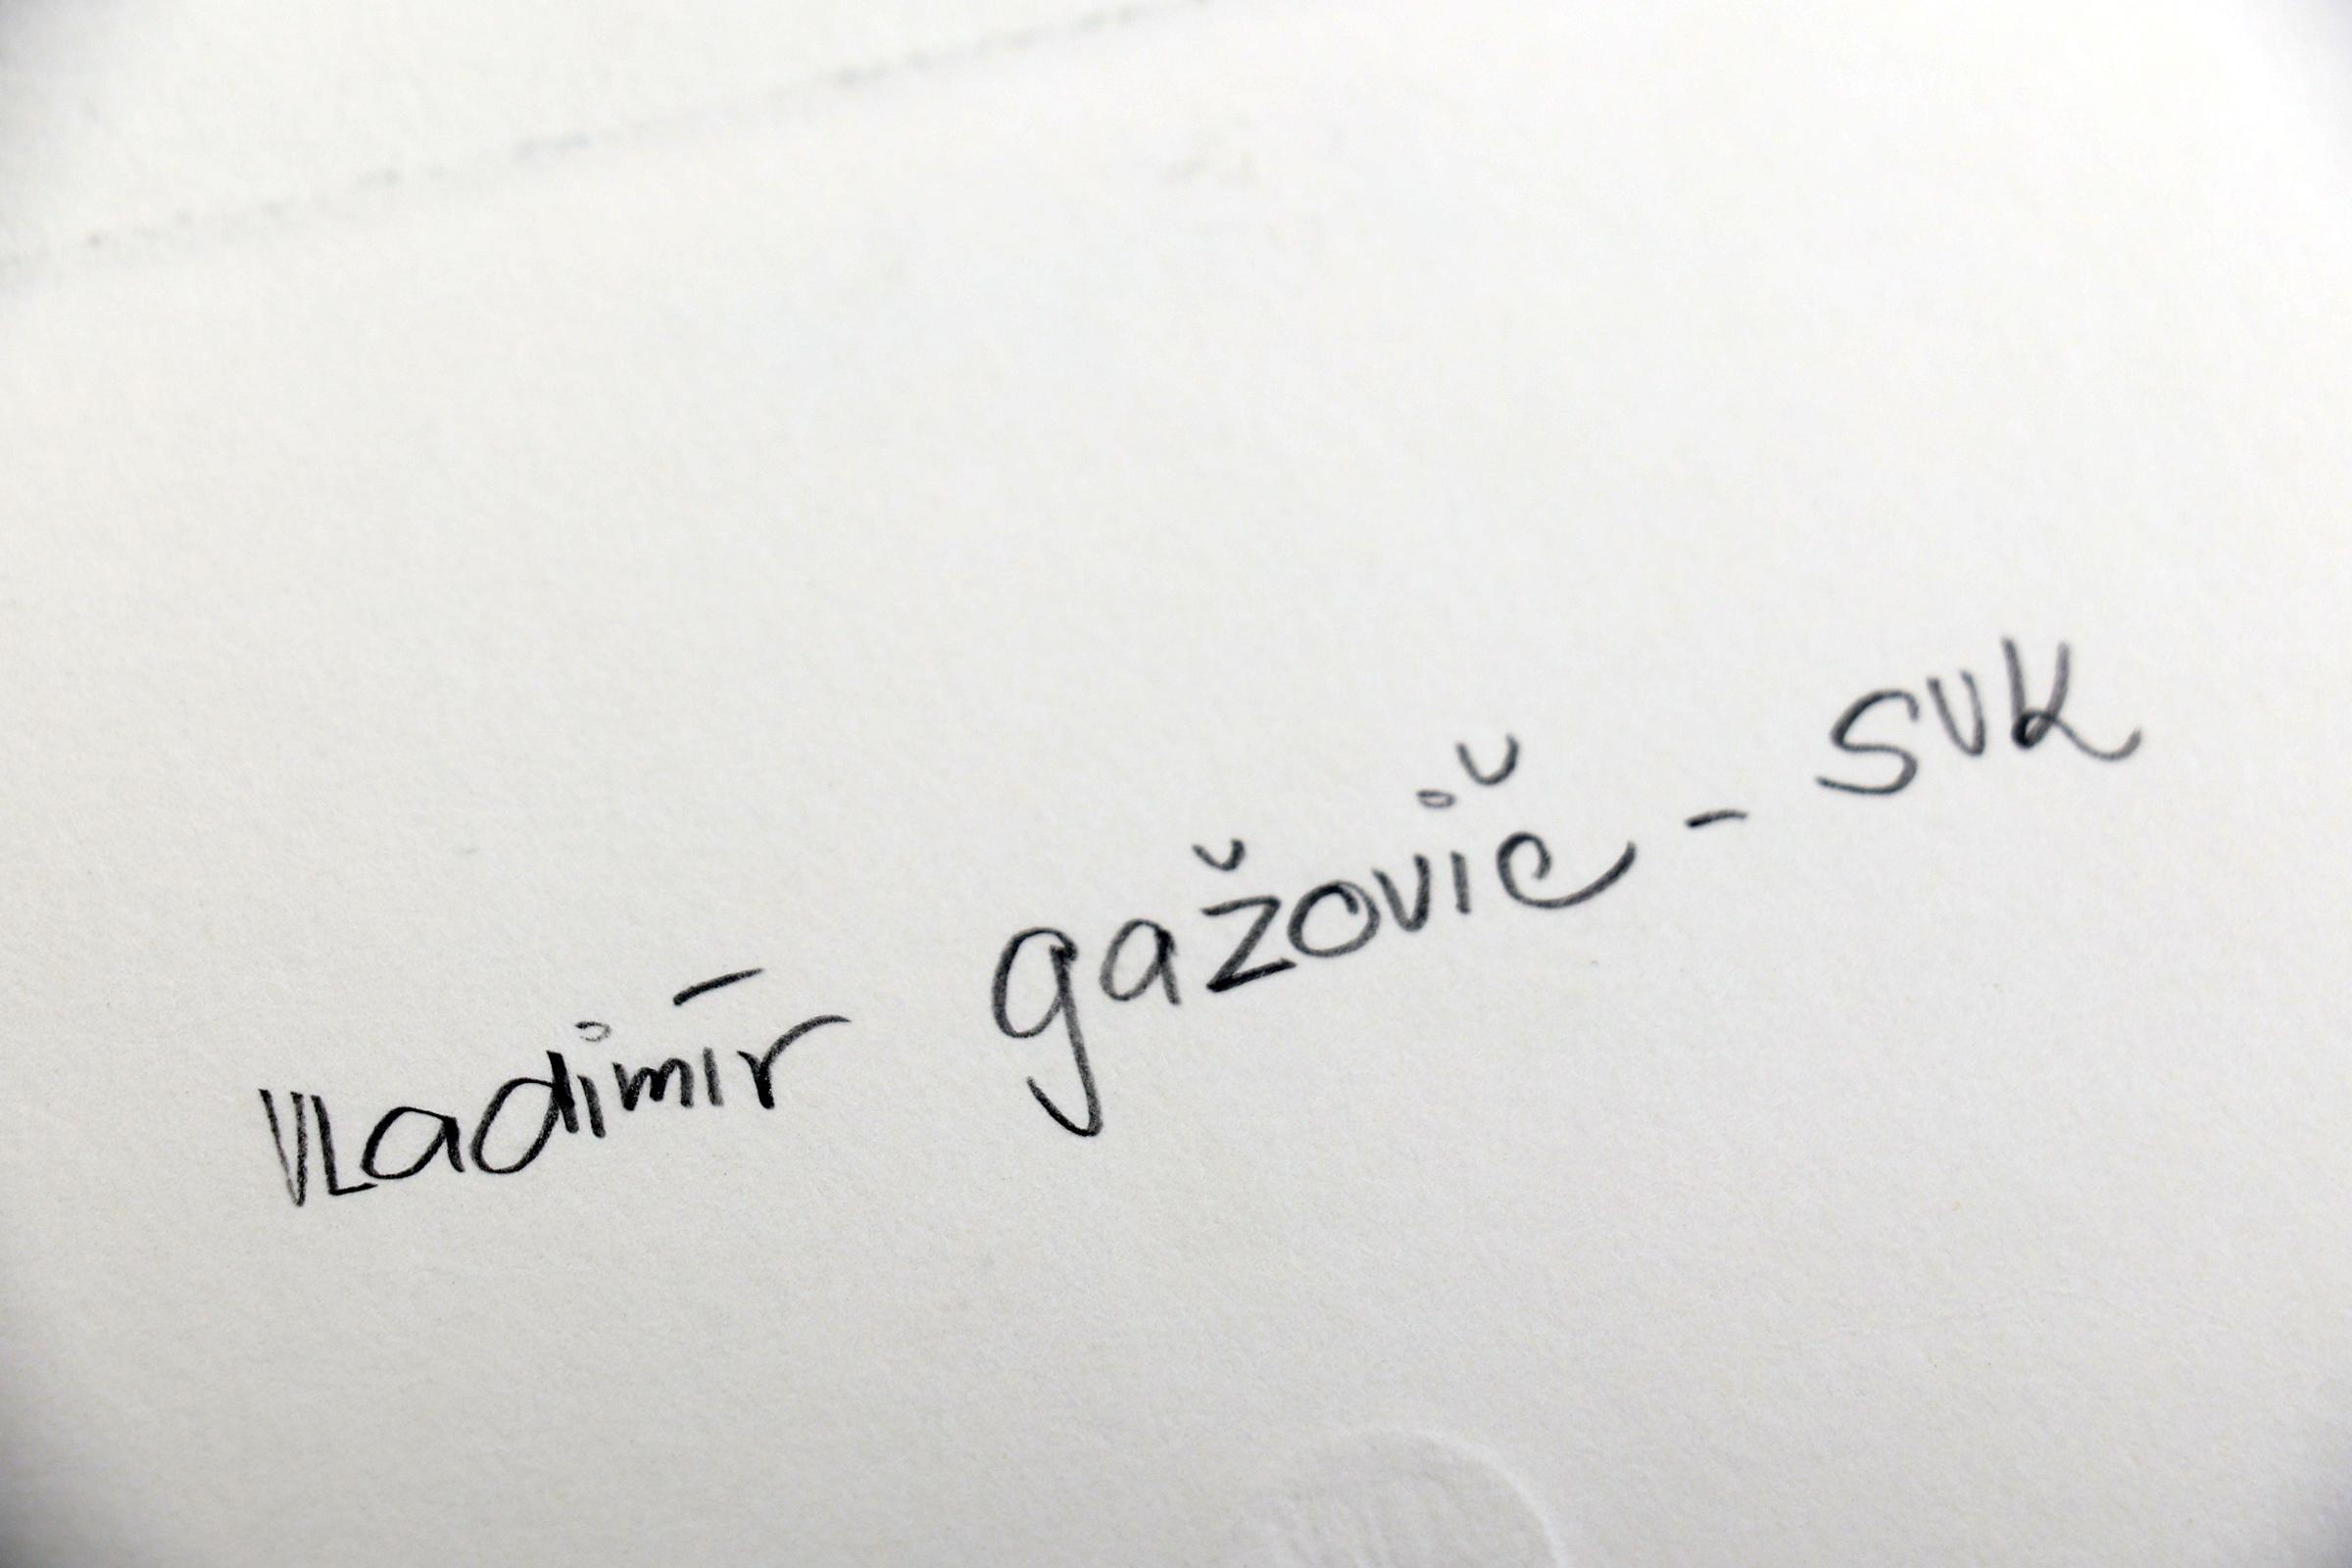 Vladimír gažovič - SVK